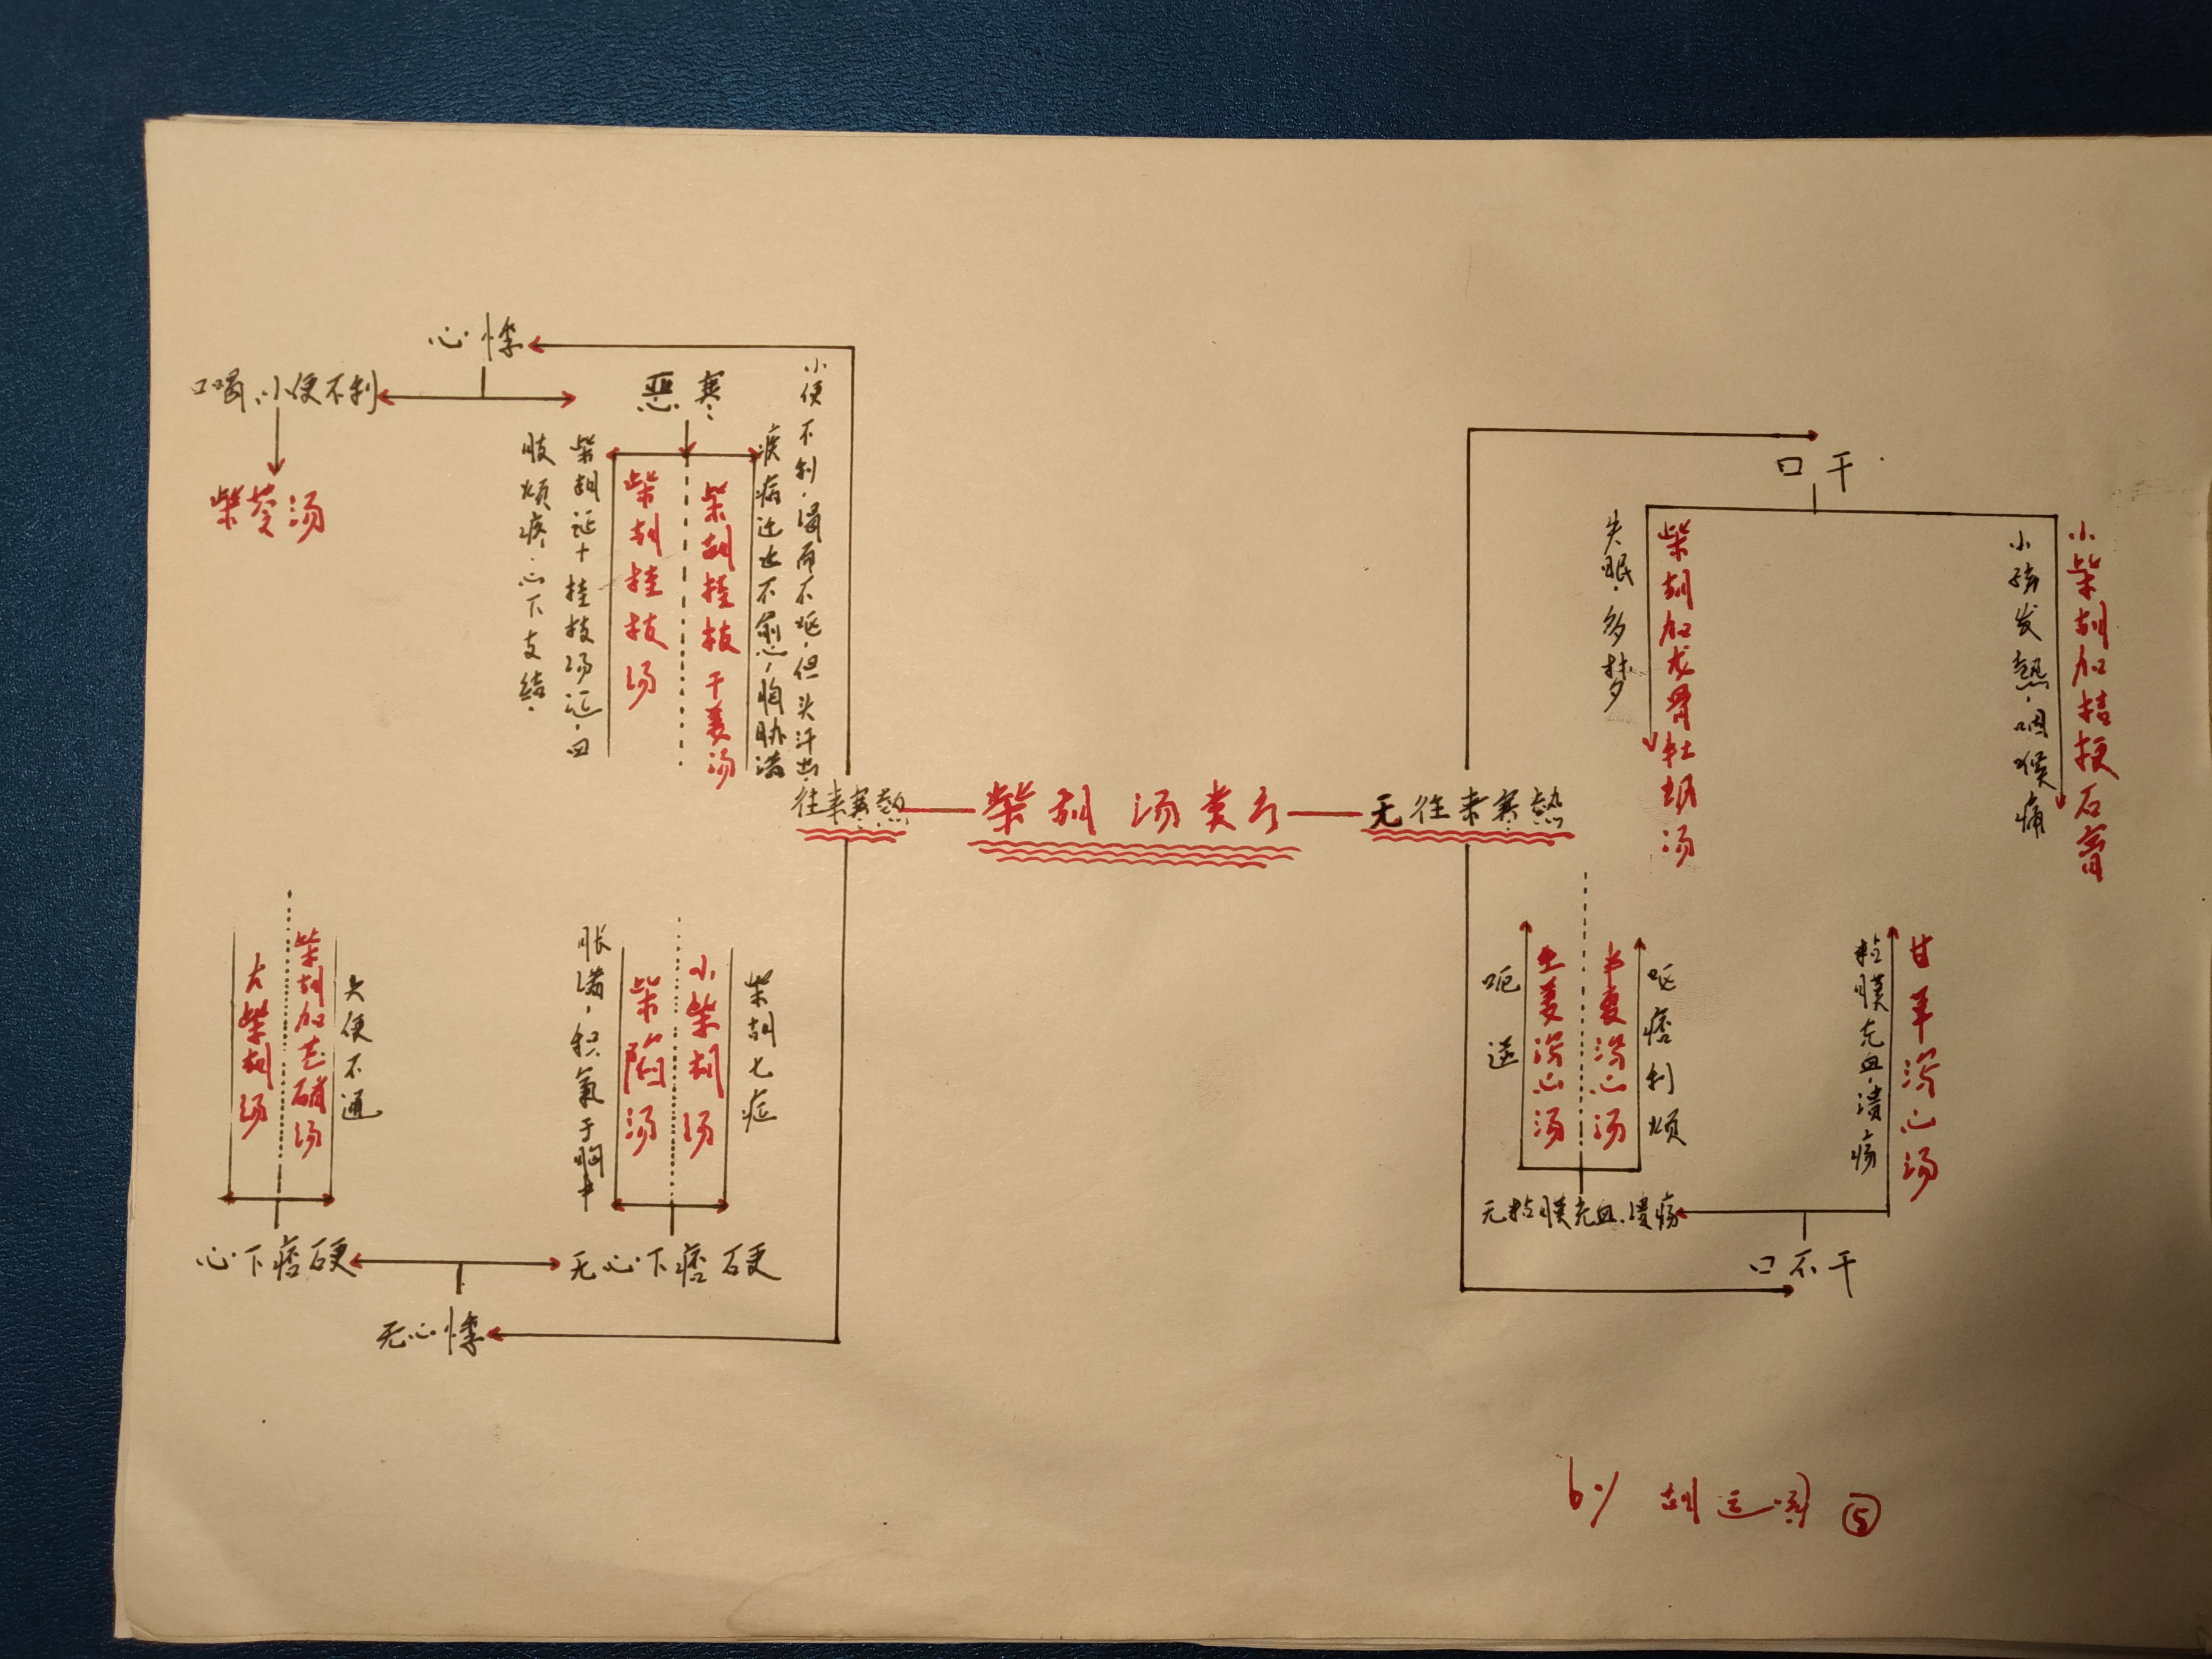 心悸
口渴.小便不利
柴苓汤
恶寒
肢烦疼.心下支结.
柴胡证十桂枝汤证.四
柴胡桂枝汤
柴胡桂枝干姜汤
疾病迁延不愈,胸胁满
小便不利.渴而不呕.但头汗出.
往来寒热
柴胡汤类方
无往来寒热
口干
失眠.多梦
柴胡加龙骨牡蛎汤
小孩发热.咽喉痛
小柴胡加桔梗石膏
大柴胡汤
柴胡加芒硝汤
大便不通
胀满,积气于胸中
柴陷汤
小柴胡汤
柴胡七症
心下痞硬
无心下痞硬
无心悸
呃逆
生姜泻心汤
半夏泻心汤
呕痞利烦
粘膜充血.溃疡
甘草泻心汤
无粘膜充血.溃疡
口不干
by 胡 ⑤